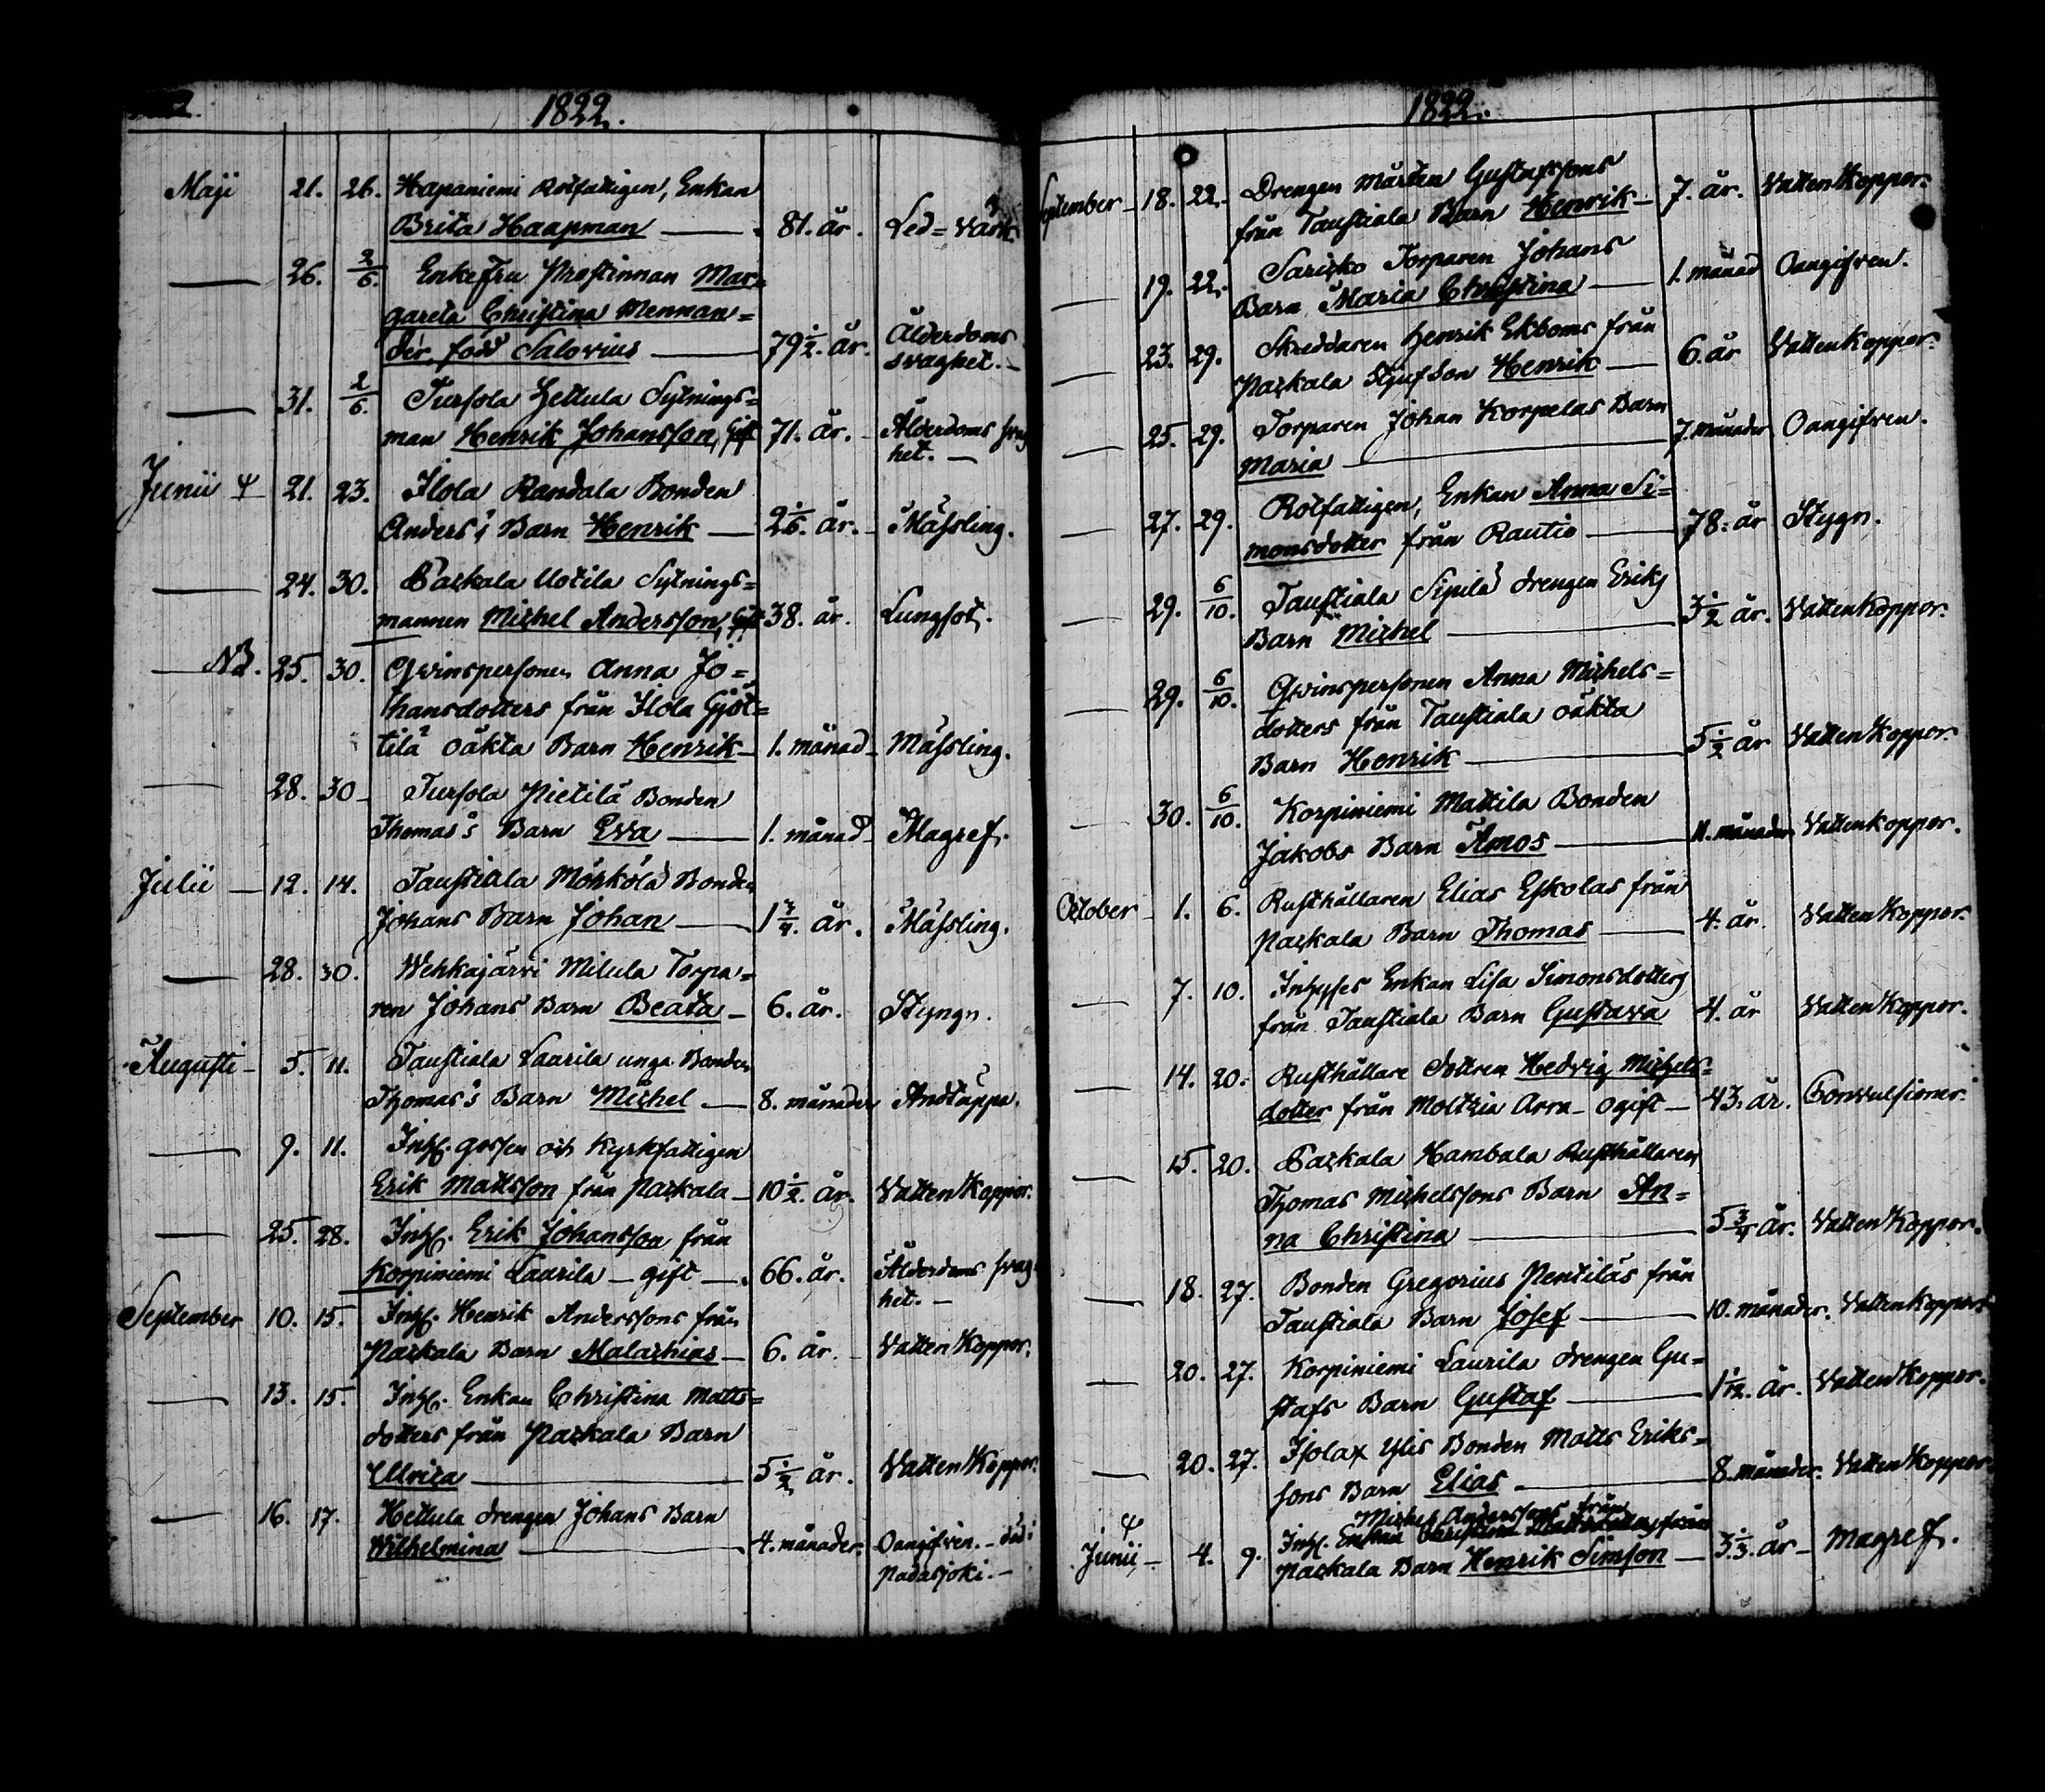 1822.
Maji 21. 26. Hapaniemi Rotfattigen, Enkan
Brita Haapman — 81. år. Led=värk
— 26. 2/6. Enkefru Prostinnan Mar=
gareta Christina Mennan=
der, född Salovius — 79 1/2. år. Ålderdoms
svaghet. —
— 31. 2/6. Tursola Hettula Sytnings=
man Henrik Johansson, Gift 71. år. — Ålderdoms svag
het. —
Junii 21. 23. Ilola Randala Bonden
Anders's Barn Henrik — 2 1/6. år. — Mässling.
— 24. 30. Packala Uotila Sytnings=
mannen Michel Andersson, Gift 38. år. Lungsot.
— NB. 25. 30. Qvinspersonen Anna Jo=
hansdotters från Ilola Gjöt=
tilä oäkta Barn Henrik — 1. månad — Mässling.
— 28. 30 — Tursola Pietilä Bonden
Thomas's Barn Eva — 1. månad — Magref.
Julii — 12. 14. Taustiala Mörkölä Bonden
Johans Barn Johan — 1 3/4. år. Mässling.
— 28. 30. Wehkajärvi Milula Torpa=
ren Johans Barn Beata — 6. år. Styngn.
Augusti — 5. 11. Taustiala Laurila unga Bonden
Thomas's Barn Michel — 8. månader Andtäppa.
— 9. 11. Inh. gossen och Kyrkfattigen
Erik Mattsson från Packala — 10 1/2. år. Vatten Koppor.
— 25. 28. Inh. Erik Johansson från
Korpiniemi Laurila — gift — 66. år. Ålderdoms svag
het. —
September 10. 15. Inh. Henrik Anderssons från
Packala Barn Malachias — 6. år. — Vatten Koppor.
— 13. 15. Inh. Enkan Christina Matts=
dotters från Packala Barn
Ullrica — 5 1/2 år. Vatten Koppor.
— 16. 17. Hettula drengen Johans Barn
Wilhelmina — 4. månader. Oangifven. — död i
Padasjoki. —
1822.
September — 18. 22. Drengen Mårten Gustafssons
från Taustiala Barn Henrik — 7. år. Vatten Koppor.
— 19. 22. Torparen Johans
Barn Maria Christina — 1. månad Oangifven.
— 23. 29. Skreddaren Henrik Ekboms från
Packala Styfson Henrik — 6. år Vatten Koppor.
— 25. 29. Torparen Johan Korpelas Barn
Maria — 7. månader Oangifven.
— 27. 29. Rotfattigen, Enkan Anna Si=
monsdotter från Rautio — 78. år Stygn.
— 29. 6/10. Taustiala Sipilä drengen Eriks
Barn Michel — 3 1/2 år. Vatten Koppor.
— 29. 6/10. Qvinspersonen Anna Michels=
dotters från Taustiala oäkta
Barn Henrik — 5 1/2 år Vatten Koppor.
— 30. 6/10. Korpiniemi Mattila Bonden
Jakobs Barn Amos — 11. månader Vattenkoppor.
October — 1. 6. Rusthållaren Elias Eskolas från
Packala Barn Thomas — 4. år. Vatten Koppor.
— 7. 10. Inhyses Enkan Lisa Simonsdotters
från Taustiala Barn Gustava 4. år Vatten Koppor.
— 14. 20. Rusthållare dottren Hedvig Michels=
dotter från Moltzia Arra — ogift — 43. år. Convulsioner.
— 15. 20. Packala Hambala Rusthållaren
Thomas Michelssons Barn An=
na Christina — 5 3/4 år. Vatten Koppor.
— 18. 27. Bonden Gregorius Pentiläs från
Taustiala Barn Josef — 10. månader. Vatten Koppor.
— 20. 27. Korpiniemi Laurila drengen Gu=
stafs Barn Gustaf — 1 1/12. år. Vatten Koppor.
— 20. 27. Bonden Matts Eriks=
sons Barn Elias — 8. månader. Vatten Koppor.
Michel Anderssons från
Junii — 4. 9. Inh. Enkan Christina Mattsdotters från
Packala Barn Henrik Simson — 3 1/3. år — Magref.